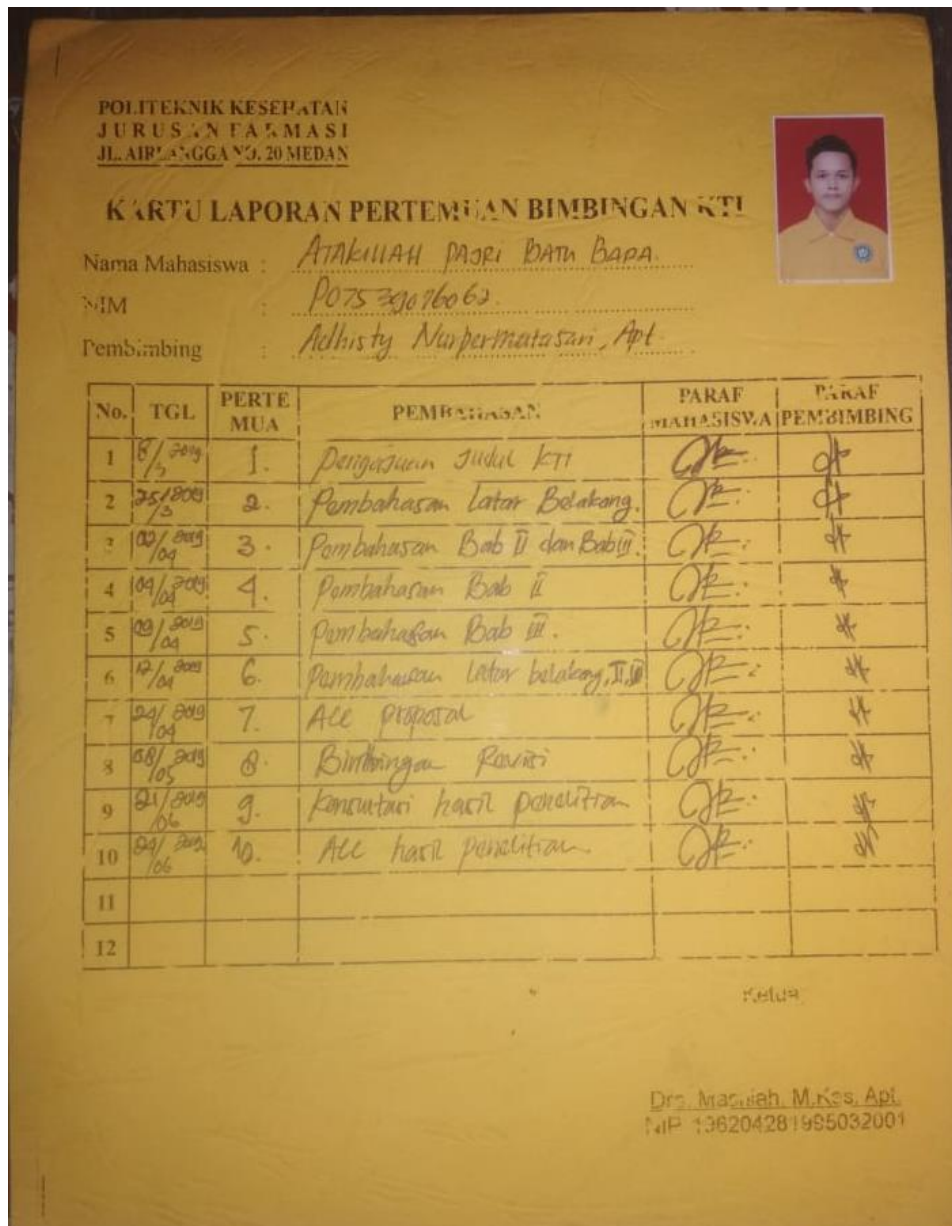 POLITEKNIK KESEHATAN
JURUSAN FARMASI
JL. AIRLANGGA NO. 20 MEDAN
KARTU LAPORAN PERTEMUAN BIMBINGAN KTI
Nama Mahasiswa : ATAKILLAH PAJRI BATU BARA.
NIM :
Pembimbing : Adhisty Nurpermatasari, Apt.
No. TGL PERTE MUA PEMBAHASAN PARAF MAHASISWA PARAF PEMBIMBING
1 8/3 2019 1. Pengajuan Judul KTI
2 25/3 2019 2. Pembahasan Latar Belakang.
3 02/04 2019 3. Pembahasan Bab II dan Bab III.
4 04/04 2019 4. Pembahasan Bab II
5 09/04 2019 5. Pembahasan Bab III.
6 12/04 2019 6. Pembahasan Latar belakang, II, III
7 24/04 2019 7. Acc proposal
8 08/05 2019 8. Bimbingan Revisi
9 21/06 2019 9. Konsultasi hasil penelitian
10 24/06 2019 10. Acc hasil penelitian
11
12
Ketua
Dra. Masniah, M.Kes, Apt.
NIP 196204281995032001